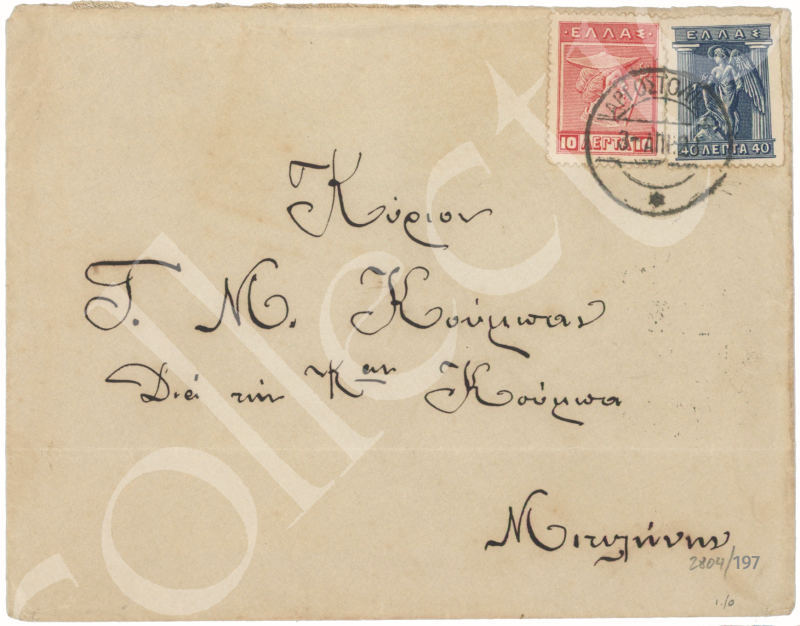 ΕΛΛΑΣ ΕΛΛΑΣ
10 ΛΕΠΤΑ 10 40 ΛΕΠΤΑ 40
ΑΡΓΟΣΤΟΛΙ
Κύριον
Γ. Μ. Κούμπαν
Διά την Καν Κούμπα
Μιτυλήνην
2804/197
1./0
Collect